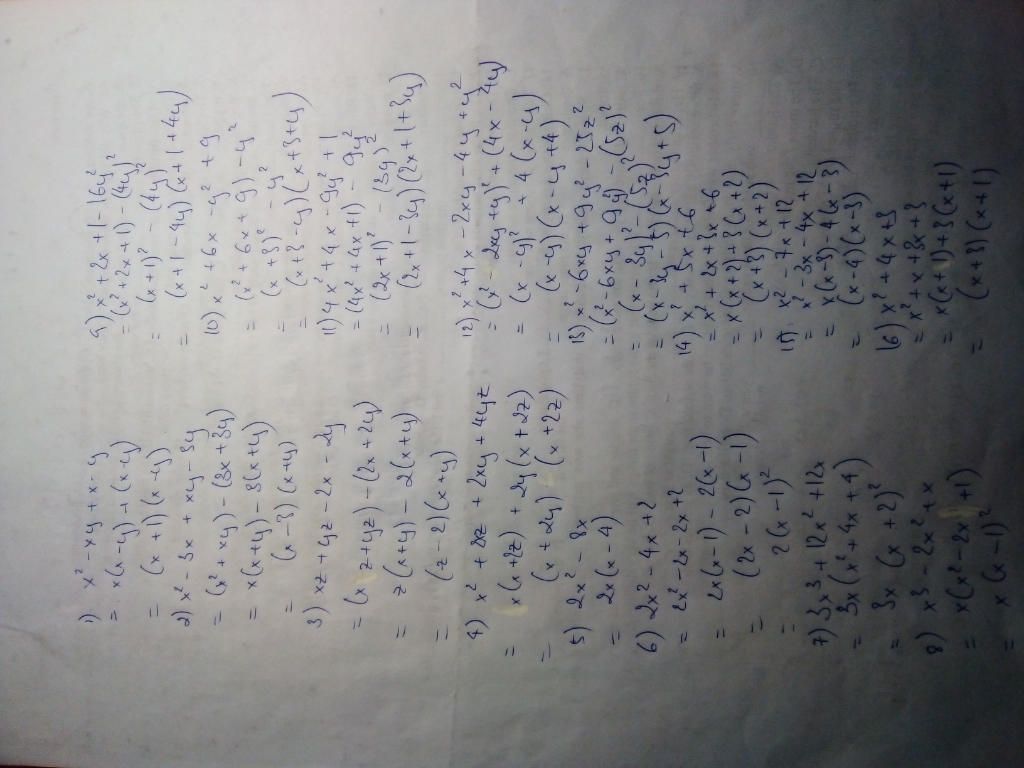 1) x² - xy + x - y
= x(x-y) + (x-y)
= (x+1)(x-y)
2) x² - 3x + xy - 3y
= (x² + xy) - (3x + 3y)
= x(x+y) - 3(x+y)
= (x-3)(x+y)
3) xz + yz - 2x - 2y
= (xz+yz) - (2x+2y)
= z(x+y) - 2(x+y)
= (z-2)(x+y)
4) x² + 2xz + 2xy + 4yz
= x(x+2z) + 2y(x+2z)
= (x+2y)(x+2z)
5) 2x² - 8x
= 2x(x-4)
6) 2x² - 4x + 2
= 2x² - 2x - 2x + 2
= 2x(x-1) - 2(x-1)
= (2x-2)(x-1)
= 2(x-1)²
7) 3x³ + 12x² + 12x
= 3x(x² + 4x + 4)
= 3x(x+2)²
8) x³ - 2x² + x
= x(x² - 2x + 1)
= x(x-1)²
9) x² + 2x + 1 - 16y²
= (x² + 2x + 1) - (4y)²
= (x+1)² - (4y)²
= (x+1-4y)(x+1+4y)
10) x² + 6x - y² + 9
= (x² + 6x + 9) - y²
= (x+3)² - y²
= (x+3-y)(x+3+y)
11) 4x² + 4x - 9y² + 1
= (4x² + 4x + 1) - 9y²
= (2x+1)² - (3y)²
= (2x+1-3y)(2x+1+3y)
12) x² + 4x - 2xy - 4y + y²
= (x² - 2xy + y²) + (4x - 4y)
= (x-y)² + 4(x-y)
= (x-y)(x-y+4)
13) x² - 6xy + 9y² - 25z²
= (x² - 6xy + 9y²) - (5z)²
= (x-3y)² - (5z)²
= (x-3y-5)(x-3y+5)
14) x² + 5x + 6
= x² + 2x + 3x + 6
= x(x+2) + 3(x+2)
= (x+3)(x+2)
15) x² - 7x + 12
= x² - 3x - 4x + 12
= x(x-3) - 4(x-3)
= (x-4)(x-3)
16) x² + 4x + 3
= x² + x + 3x + 3
= x(x+1) + 3(x+1)
= (x+3)(x+1)